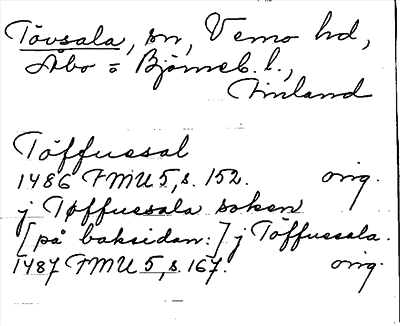 Tövsala, sn, Vemo hd,
Åbo = Björneb. l.,
Finland
Töffussal
1486 FMU 5, s. 152. orig.
j Töffussala soken
[på baksidan:] j Töffussala.
1487 FMU 5, s. 167. orig.